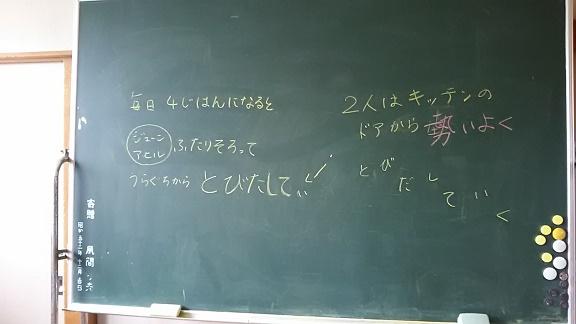 毎日 4じはんになると
ジェーン
アヒル
ふたりそろって
うらぐちから とびだして、い
2人はキッチンの
ドアから 勢いよく
とびだしていく
寄贈